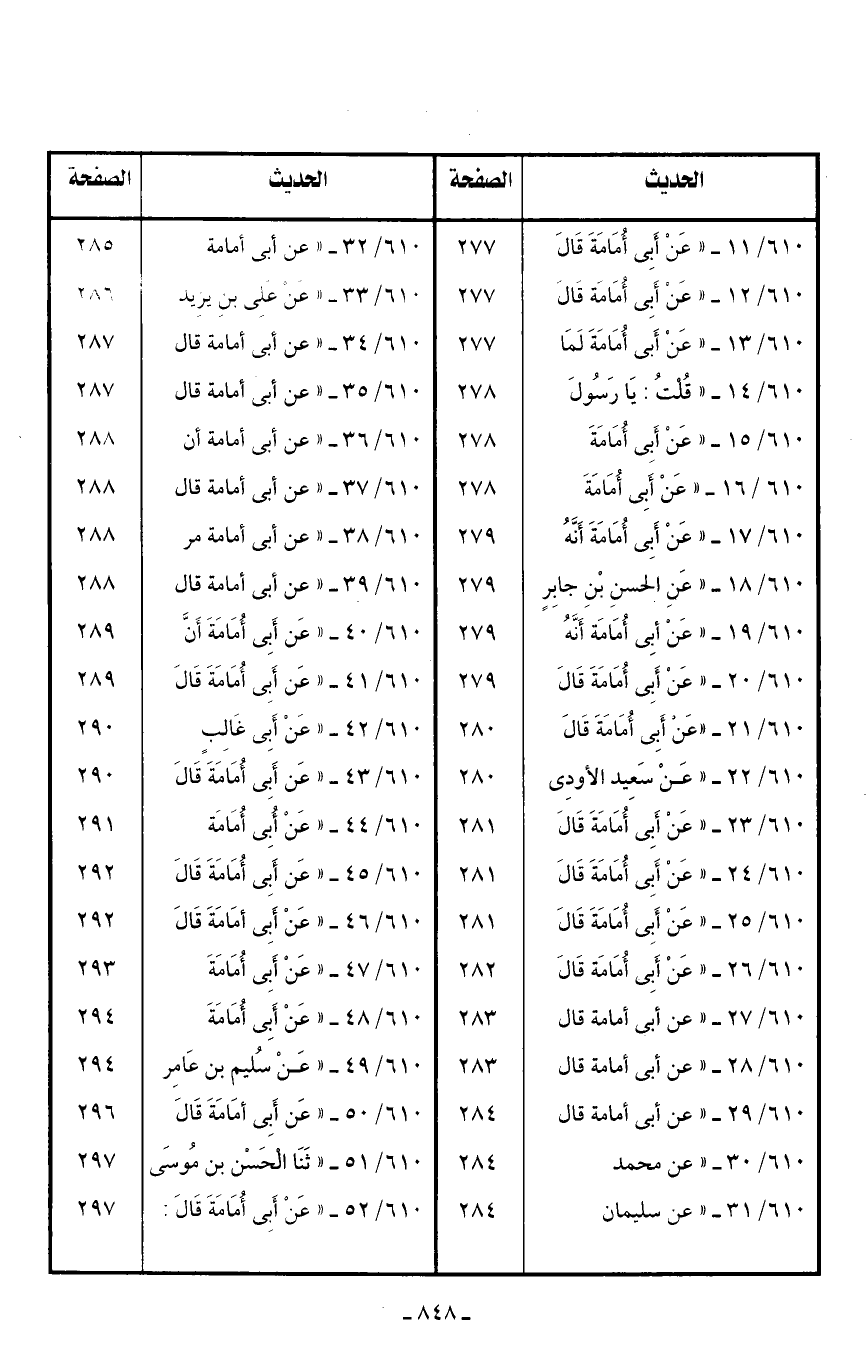 الحديث الصفحة الحديث الصفحة
٦١٠/ ١١ ـ « عَنْ أَبِى أُمَامَةَ قَالَ ٢٧٧ ٦١٠/ ٣٢ ـ « عن أبى أمامة ٢٨٥
٦١٠/ ١٢ ـ « عَنْ أَبِى أُمَامَةَ قَالَ ٢٧٧ ٦١٠/ ٣٣ ـ « عَنْ عَلِى بنِ يزيد ٢٨٦
٦١٠/ ١٣ ـ « عَنْ أَبِى أُمَامَةَ لَمَا ٢٧٧ ٦١٠/ ٣٤ ـ « عن أبى أمامة قال ٢٨٧
٦١٠/ ١٤ ـ « قُلْتُ : يَا رَسُولَ ٢٧٨ ٦١٠/ ٣٥ ـ « عن أبى أمامة قال ٢٨٧
٦١٠/ ١٥ ـ « عَنْ أَبِى أُمَامَةَ ٢٧٨ ٦١٠/ ٣٦ ـ « عن أبى أمامة أن ٢٨٨
٦١٠ / ١٦ ـ « عَنْ أَبِى أُمَامَةَ ٢٧٨ ٦١٠/ ٣٧ ـ « عن أبى أمامة قال ٢٨٨
٦١٠/ ١٧ ـ « عَنْ أَبِى أُمَامَةَ أَنَّهُ ٢٧٩ ٦١٠/ ٣٨ ـ « عن أبى أمامة مر ٢٨٨
٦١٠/ ١٨ ـ « عَنِ الحسنِ بْنِ جابِرٍ ٢٧٩ ٦١٠/ ٣٩ ـ « عن أبى أمامة قال ٢٨٨
٦١٠/ ١٩ ـ « عَنْ أبِى أُمَامَة أَنَّهُ ٢٧٩ ٦١٠/ ٤٠ ـ « عَن أَبِى أُمَامَةَ أَنَّ ٢٨٩
٦١٠/ ٢٠ ـ « عَنْ أَبِى أُمَامَةَ قَالَ ٢٧٩ ٦١٠/ ٤١ ـ « عَن أَبِى أُمَامَةَ قَالَ ٢٨٩
٦١٠/ ٢١ ـ «عَنْ أَبِى أُمَامَةَ قَالَ ٢٨٠ ٦١٠/ ٤٢ ـ « عَنْ أَبِى غَالِبٍ ٢٩٠
٦١٠/ ٢٢ ـ « عَـنْ سَعِيد الأودِى ٢٨٠ ٦١٠/ ٤٣ ـ « عَن أَبِى أُمَامَةَ قَالَ ٢٩٠
٦١٠/ ٢٣ ـ « عَنْ أَبِى أُمَامَةَ قَالَ ٢٨١ ٦١٠/ ٤٤ ـ « عَنْ أُبِى أُمَامَة ٢٩١
٦١٠/ ٢٤ ـ « عَنْ أَبِى أُمَامَةَ قَالَ ٢٨١ ٦١٠/ ٤٥ ـ « عَن أَبِى أُمَامَةَ قَالَ ٢٩٢
٦١٠/ ٢٥ ـ « عَنْ أَبِى أُمَامَةَ قَالَ ٢٨١ ٦١٠/ ٤٦ ـ « عَنْ أَبِى أمَامَةَ قَالَ ٢٩٢
٦١٠/ ٢٦ ـ « عَنْ أَبِى أُمَامَةَ قَالَ ٢٨٢ ٦١٠/ ٤٧ ـ « عَنْ أَبِى أُمَامَةَ ٢٩٣
٦١٠/ ٢٧ ـ « عن أبى أمامة قال ٢٨٣ ٦١٠/ ٤٨ ـ « عَنْ أَبِى أُمَامَةَ ٢٩٤
٦١٠/ ٢٨ ـ « عن أبى أمامة قال ٢٨٣ ٦١٠/ ٤٩ ـ « عَـنْ سُليم بن عَامِر ٢٩٤
٦١٠/ ٢٩ ـ « عن أبى أمامة قال ٢٨٤ ٦١٠/ ٥٠ ـ « عَن أَبِى أمَامَةَ قَالَ ٢٩٦
٦١٠/ ٣٠ ـ « عن محمد ٢٨٤ ٦١٠/ ٥١ ـ « ثَنَا الْحَسْن بن مُوسَى ٢٩٧
٦١٠/ ٣١ ـ « عن سليمان ٢٨٤ ٦١٠/ ٥٢ ـ « عَنْ أَبِى أُمَامَةَ قَالَ : ٢٩٧
ـ ٨٤٨ ـ